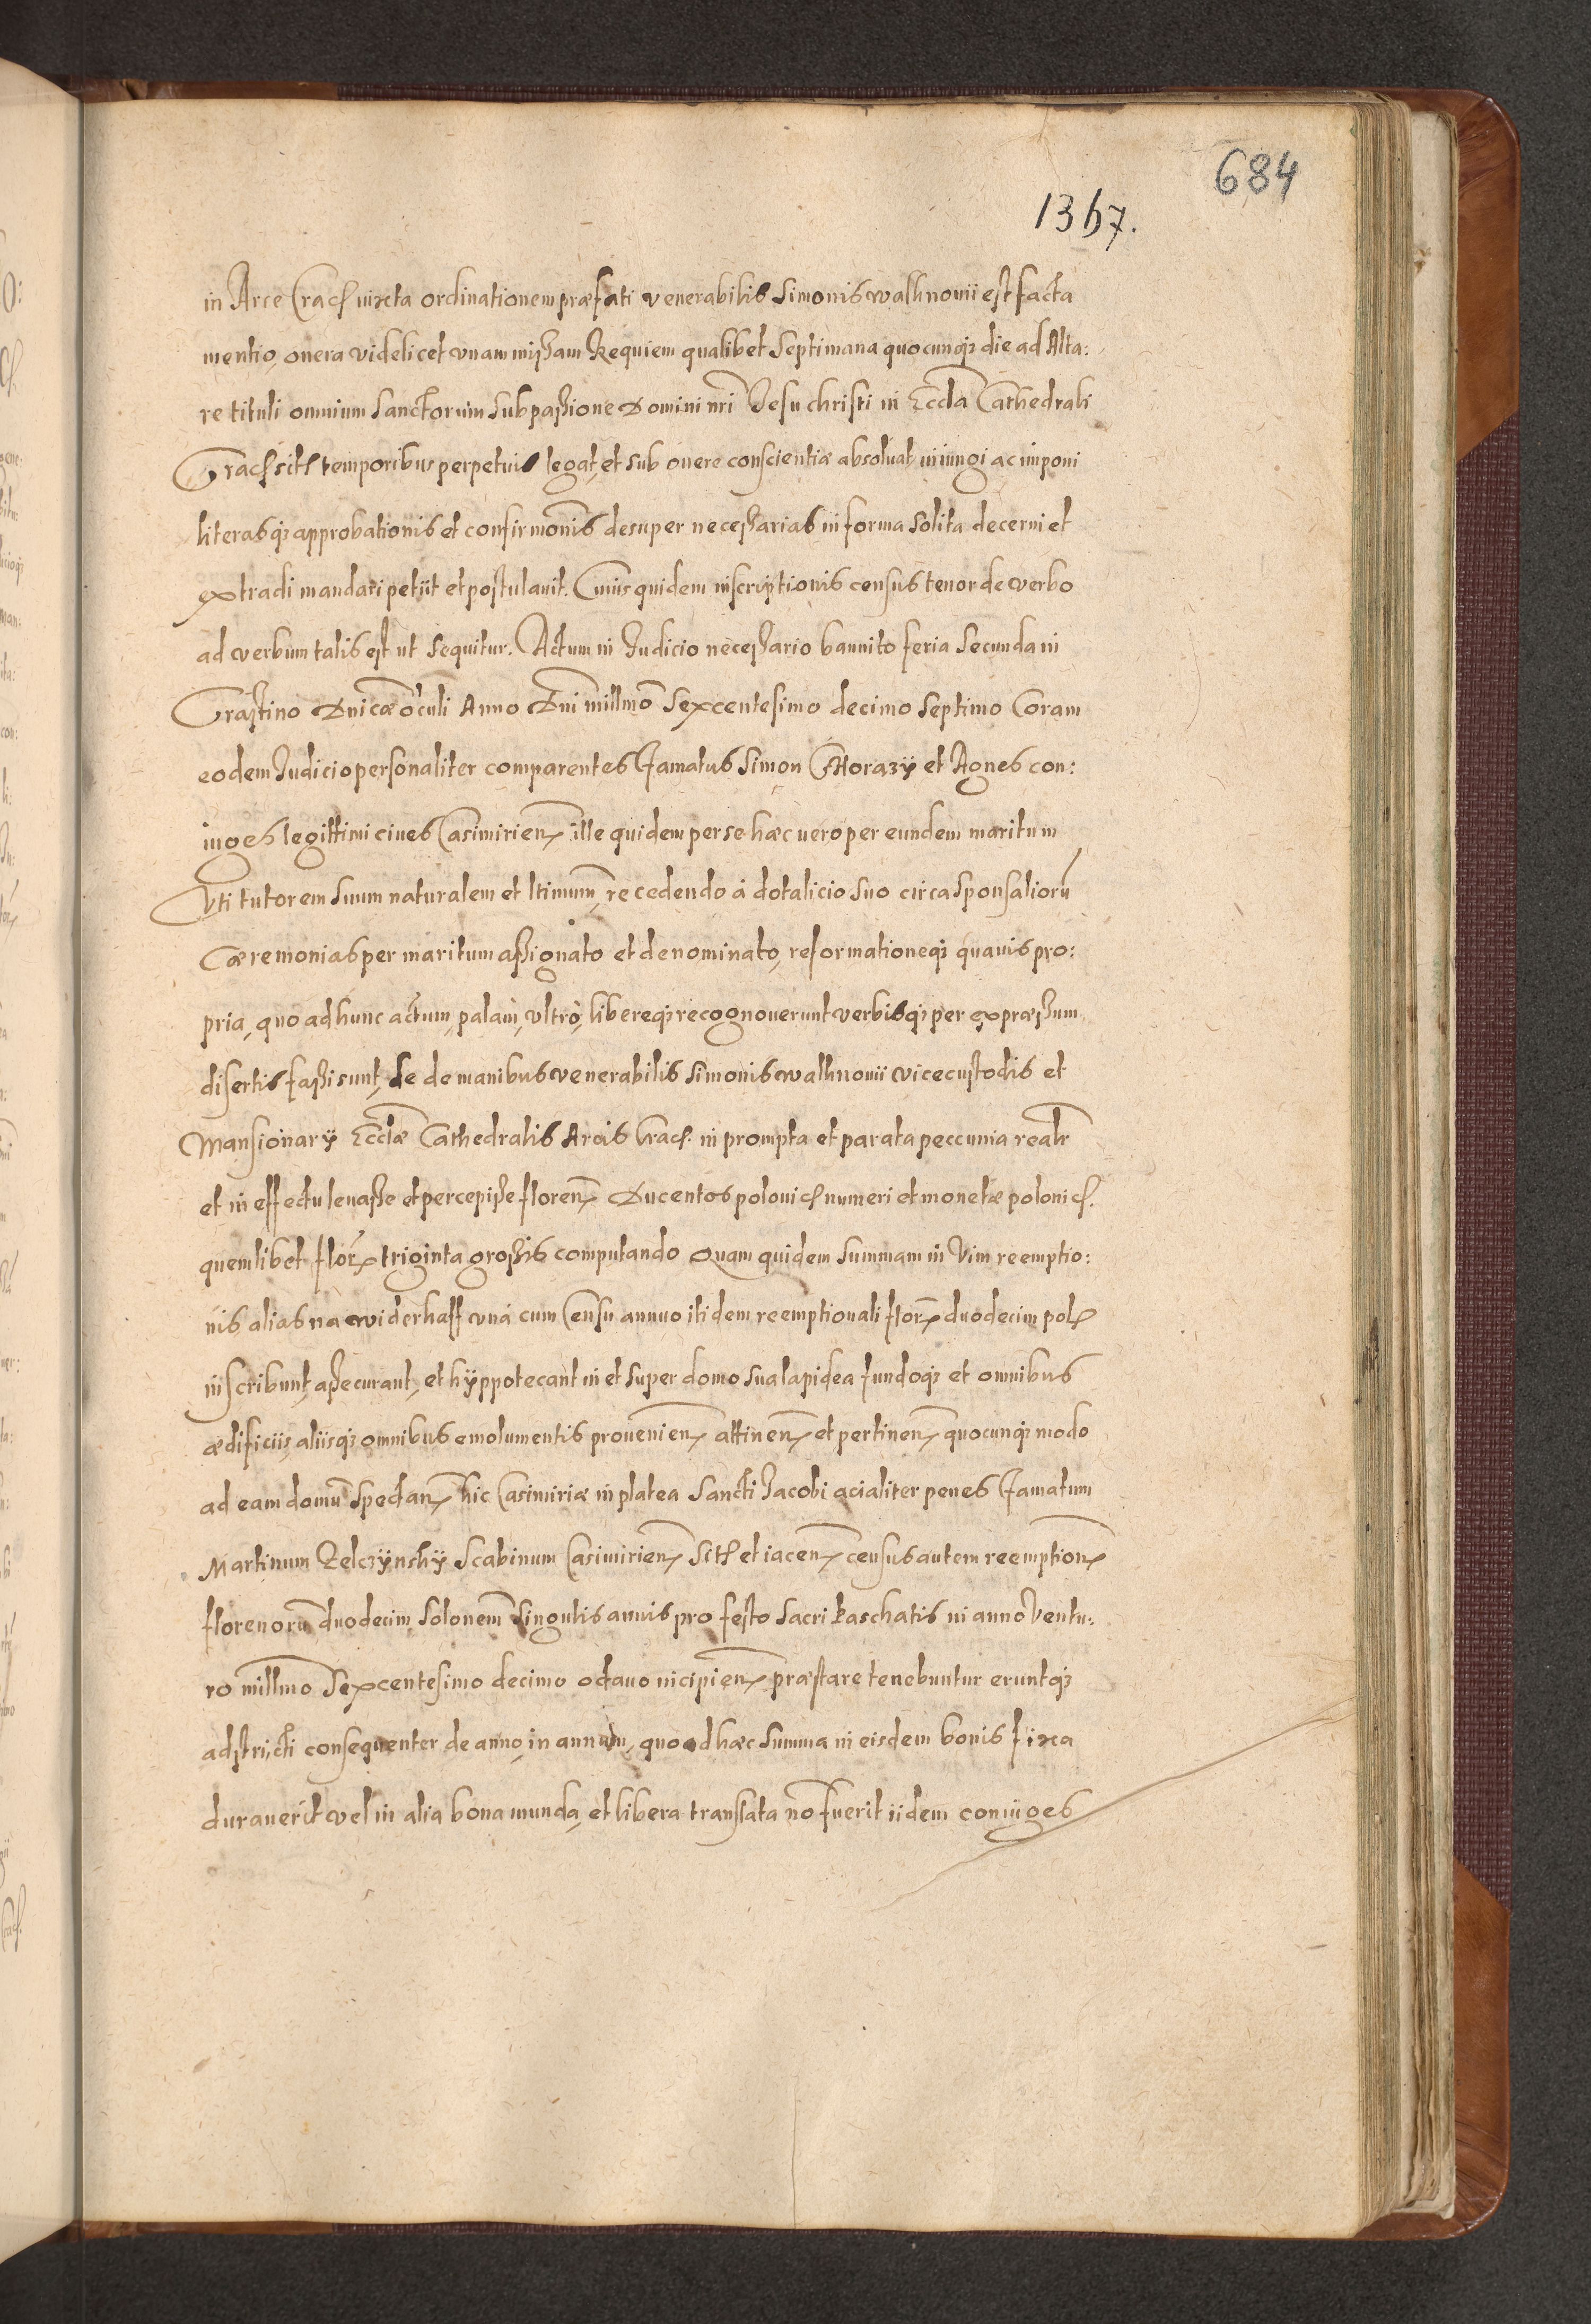 684
1367.
in Arce Crac. iuxta ordinationem præfati venerabilis Simonis Walknouii est facta
mentio, onera videlicet vnam missam Requiem qualibet Septimana quocunq3 die ad Alta:
re tituli omnium Sanctorum sub passione Domini nri Jesu christi in Eccla Cathedrali
Crac. sit. temporibus perpetuis legat, et sub onere conscientiæ absoluat iniungi ac imponi
literasq3 approbationis et confirmonis desuper necessarias in forma solita decerni et
extradi mandari petiit et postulauit. Cuius quidem inscriptionis census tenor de verbo
ad verbum talis est ut sequitur. Actum in Judicio necessario bannito feria Secunda in
Crastino Dnicæ oculi Anno Dni millmo Sexcentesimo decimo Septimo Coram
eodem Judicio personaliter comparentes famatus Simon et Agnes con:
iuges legittimi ciues Casimirien. ille quidem per se hæc uero per eundem maritum
Vti tutorem suum naturalem et ltimum, recedendo à dotalicio suo circa sponsalioru
Cæremonias per maritum assignato et denominato, reformationeq3 quauis pro:
pria, quo ad hunc actum, palàm, vltrò, libereq3 recognouerunt verbisq3 per expræssum
disertis fassi sunt, Se de manibus venerabilis Simonis Walknouii vicecustodis et
Mansionarÿ Ecclæ Cathedralis Arcis Crac. in prompta et parata peccunia realr
et in effectu leuasse et percepisse floren. Ducentos polonic. numeri et monetæ polonic.
quemlibet flor. triginta grossis computando Quam quidem summam in Vim reemptio:
nis alias na widerkaff vnà cum Censu annuo itidem reemptionali flor. duodecim pol.
inscribunt, assecurant, et hÿppotecant in et super domo sua lapidea fundoq3 et omnibus
ædificiis, aliisq3 omnibus emolumentis prouenien. attinen. et pertinen. quocunq3 modo
ad eam domu spectan. hic Casimiriæ in platea Sancti Jacobi acialiter penes famatum
Martinum Zelczÿnskÿ Scabinum Casimirien. Sit. et iacen. census autem reemption.
florenoru duodecim, Solonem Singulis annis pro festo Sacri Paschatis in anno Ventu:
ro millmo Sexcentesimo decimo octauo incipien. præstare tenebuntur eruntq3
adstricti consequenter de anno, in annum, quoad hæc Summa in eisdem bonis fixa
durauerit vel in alia bona munda, et libera translata no fuerit iidem coniuges